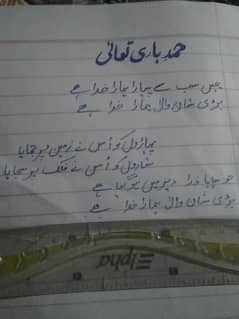 حمد باری تعالیٰ
ہمیں سب سے پیارا ہمارا خدا ہے
بڑی شان والا ہمارا خدا ہے
پہاڑوں کو اُس نے زمیں پر جمایا
ستاروں کو اُس نے فلک پر سجایا
جو چاہا خدا
بڑی شان والا ہمارا خدا ہے
Elpha